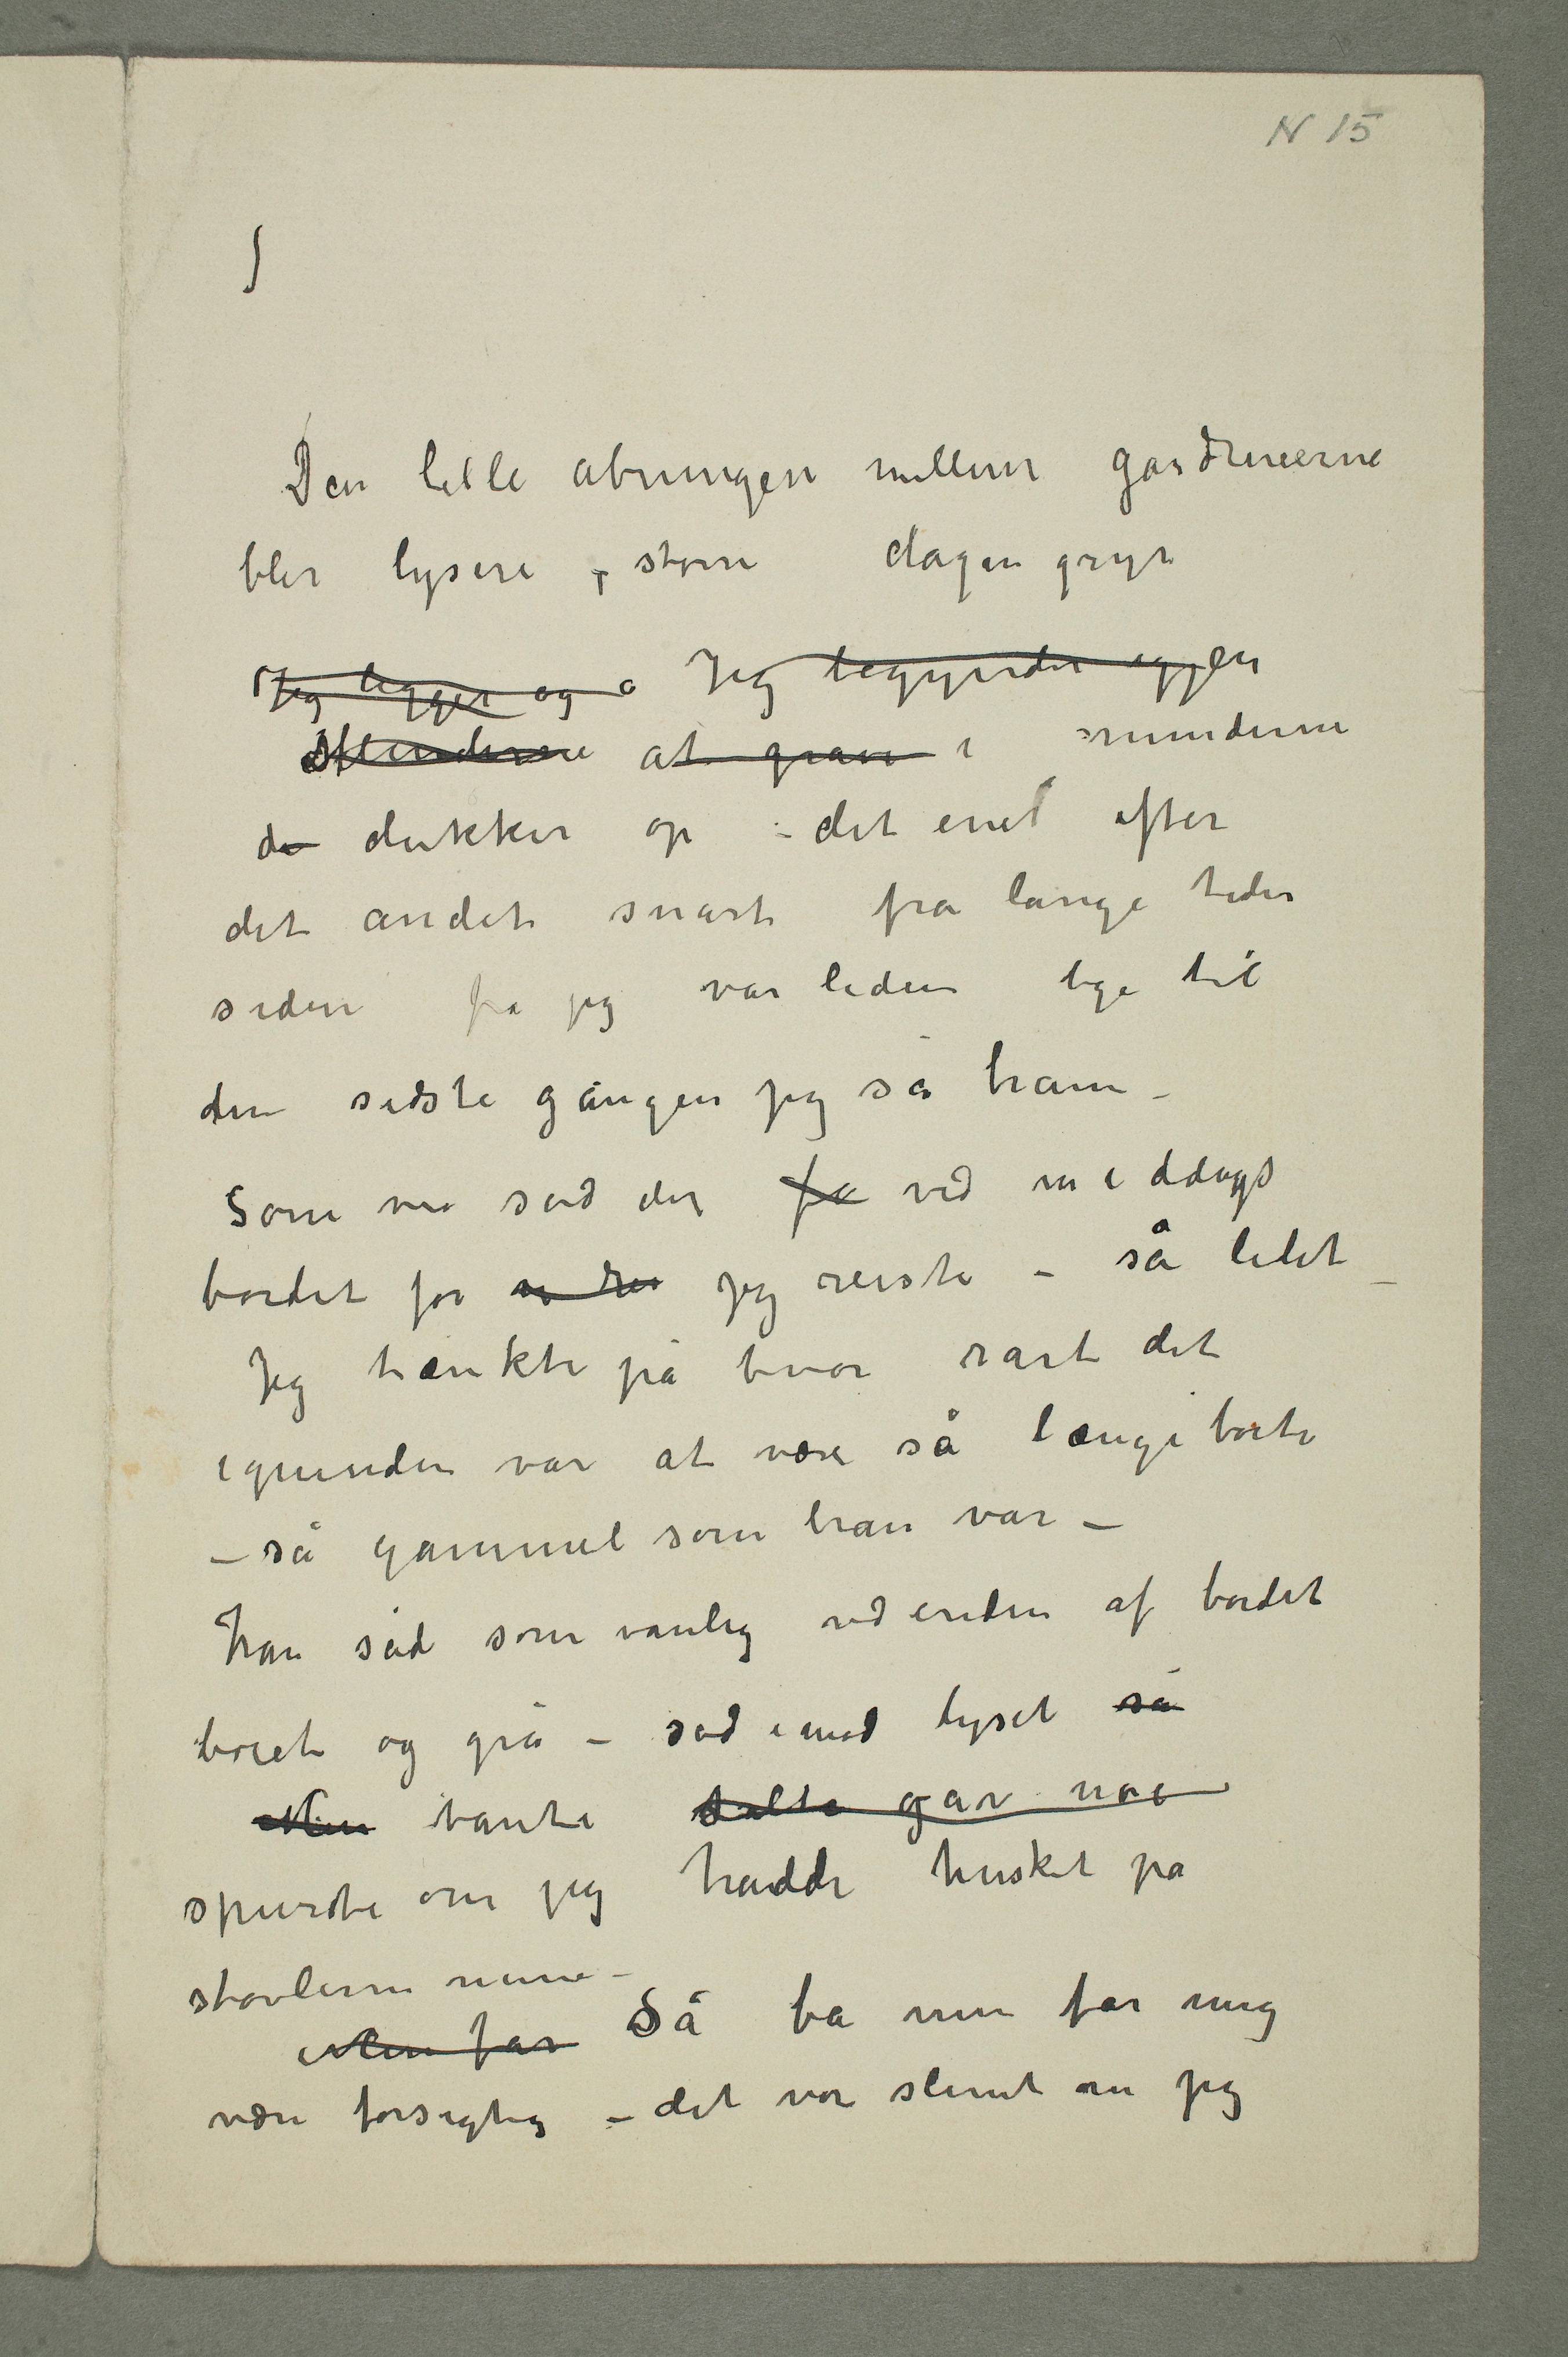 N 15
Den lille åbningen mellem gardinerne
blir lysere, større dagen gryr
Jeg ligger og a Jeg begynder igjen
Minderne at grave i minderne
de dukker op – det enet efter
det andet snart fra lange tider
siden fra jeg var liden lige til
den sidste gangen jeg så ham –
Som vi sad der fa ved middags
bordet før jeg reiste – så lidet –
Jeg tænkte på hvor rart det
igrunden var at være så længe borte
– så gammel som han var –
Han sad som vanlig ved enden af bordet
bøiet og grå – sad imod lyset så
Min tante talte gav noe
spurte om jeg hadde husket på
støvlerne mine –
Min far Så ba min far mig
være forsigtig – det var slemt om jeg